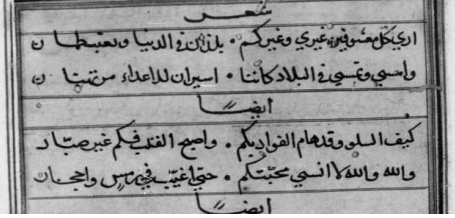 شعر
ارى كل معشوقين غيري وغيركم • يلذان في الدنيا ويغتبطان
وامسي وتمسي في البلاد كأننا • اسيران للاعداء مرتهنان
ايضاً
كيف السلو وقد هام الفواد بكم • واصبح القلب فيكم غير صبار
والله والله لا انسي محبتكم • حتي اغيب في رمس واحجار
ايضاً